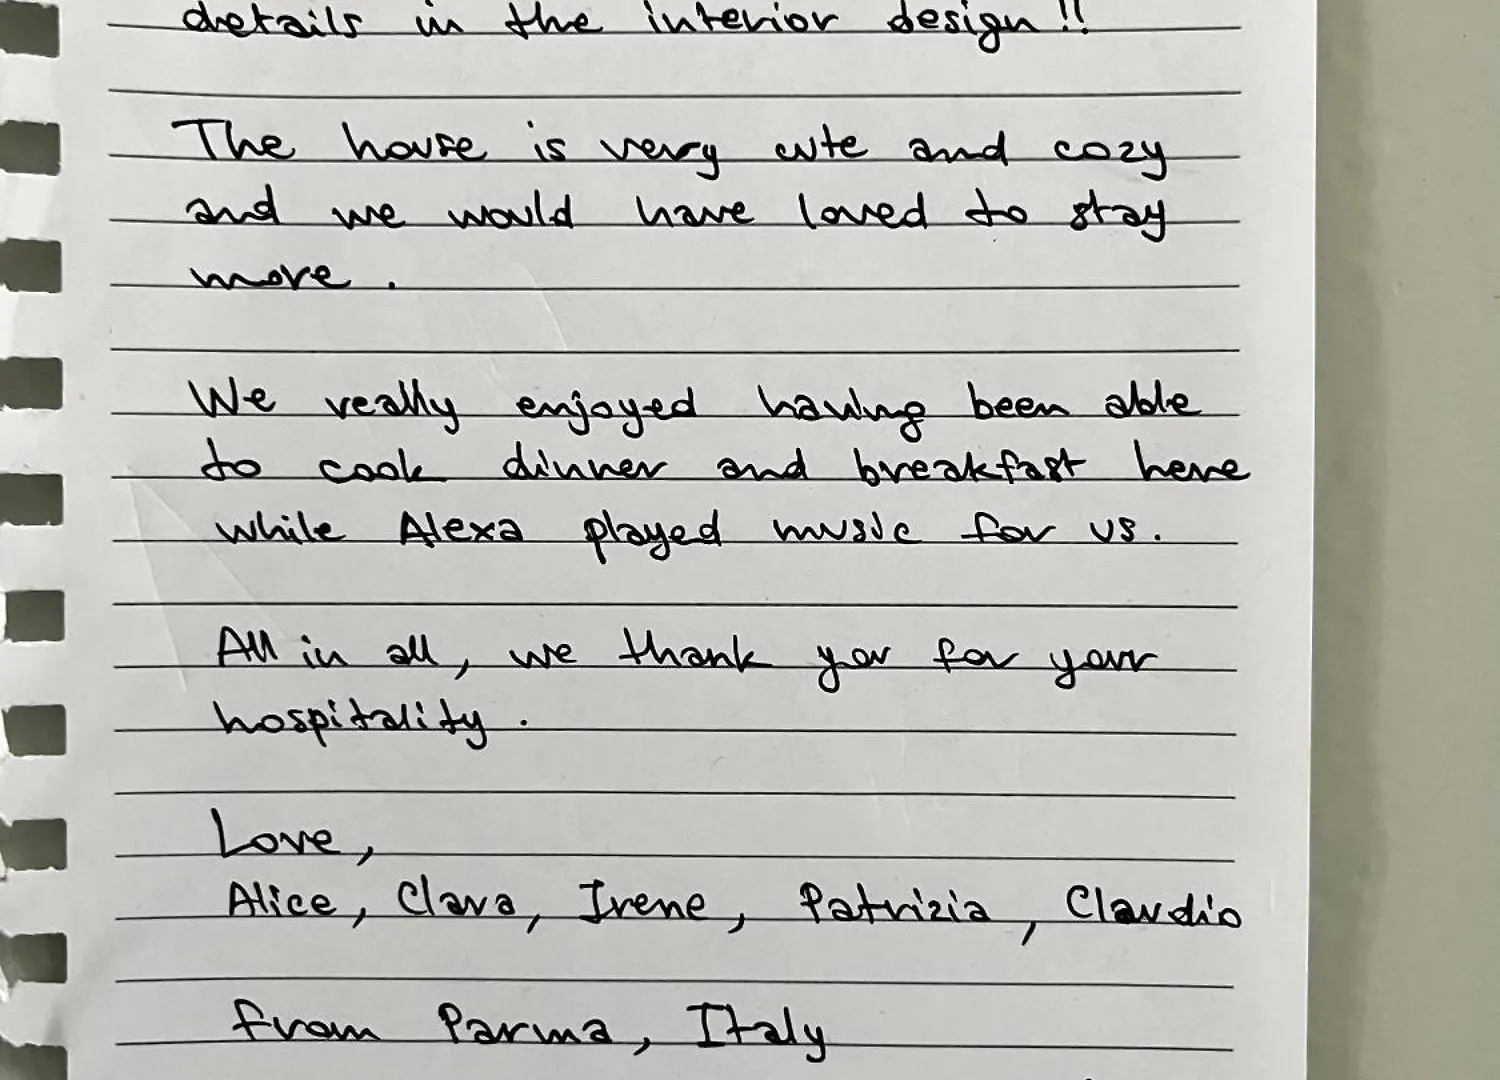 details in the interior design!!
The house is very cute and cozy
and we would have loved to stay
more.
We really enjoyed having been able
to cook dinner and breakfast here
while Alexa played music for us.
All in all, we thank you for your
hospitality.
Love,
Alice, Clara, Irene, Patrizia, Claudio
from Parma, Italy